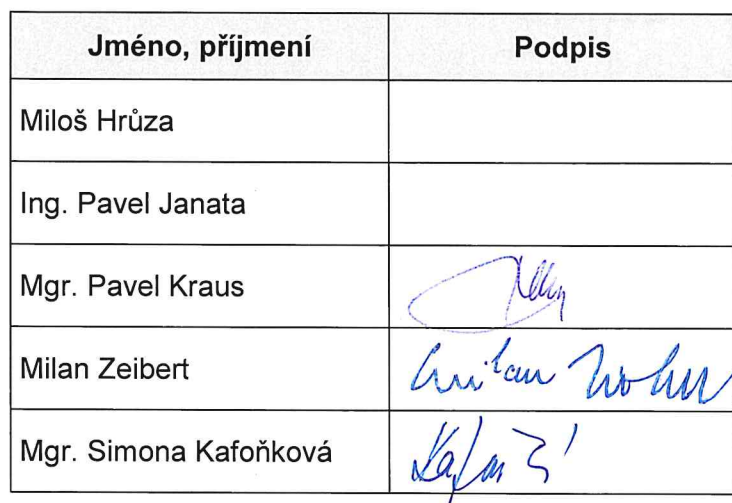 Jméno, příjmení Podpis
Miloš Hrůza
Ing. Pavel Janata
Mgr. Pavel Kraus
Milan Zeibert Milan
Mgr. Simona Kafoňková